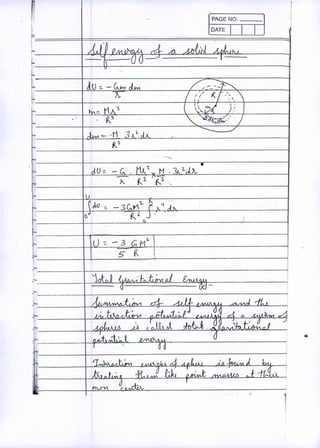 PAGE NO.
DATE
Self energy of a solid sphere.
dU = -Gm dm
r
R
m = Mr³
R³
dm = M 3r² dr
R³
dU = -G Mr³ × M . 3r² dr
r R³ R³
U R
∫dU = -3GM² ∫ r⁴ . dr
0 R⁶ 0
U = -3 GM²
5 R
Total Gravitational Energy
Summation of self energy and the
interaction potential energy of a system of
spheres is called total gravitational
potential energy.
Interaction energies of sphere is found by
treating them like point masses at their
own center